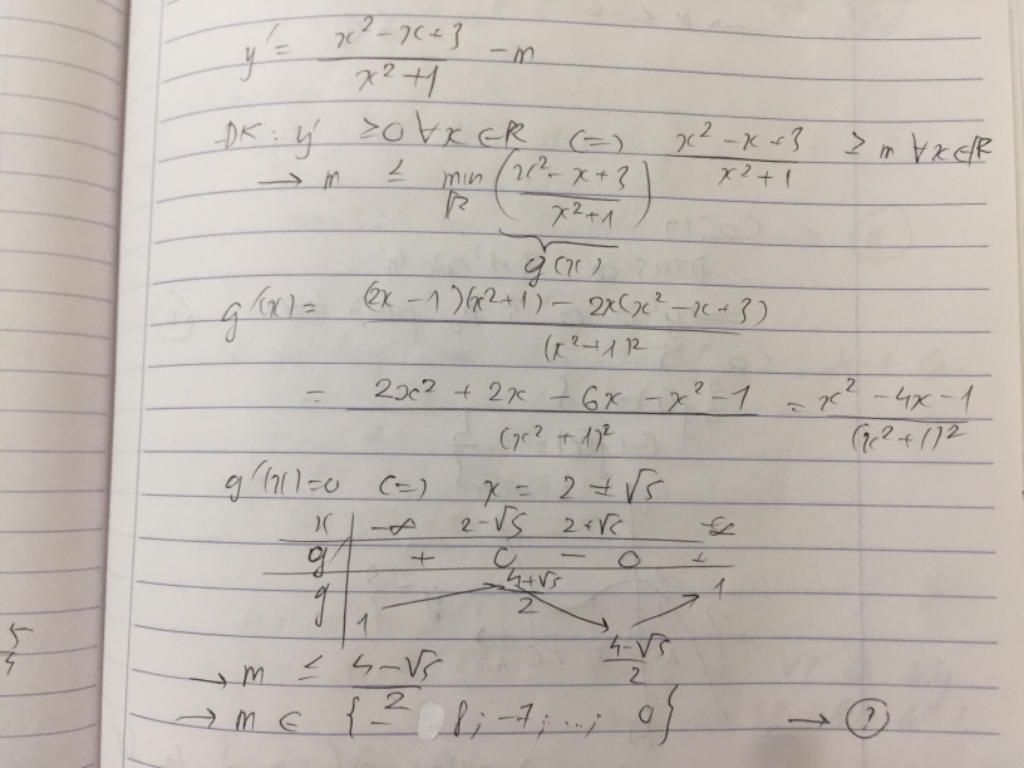 y' = (x² - x + 3)/(x² + 1) - m
ĐK: y' ≥ 0 ∀x∈R (=) (x² - x + 3)/(x² + 1) ≥ m ∀x∈R
→ m ≤ min R ((x² - x + 3)/(x² + 1))
g(x)
g'(x) = ((2x - 1)(x² + 1) - 2x(x² - x + 3))/(x² + 1)²
= (2x² + 2x - 6x - x² - 1)/(x² + 1)² = (x² - 4x - 1)/(x² + 1)²
g'(x) = 0 (=) x = 2 ± √5
x | -∞ 2-√5 2+√5 +∞
g' | + 0 - 0 +
g | 1 (4+√5)/2 (4-√5)/2 1
→ m ≤ (4-√5)/2
→ m ∈ {-8; -7; ...; 0} → ?
5/4